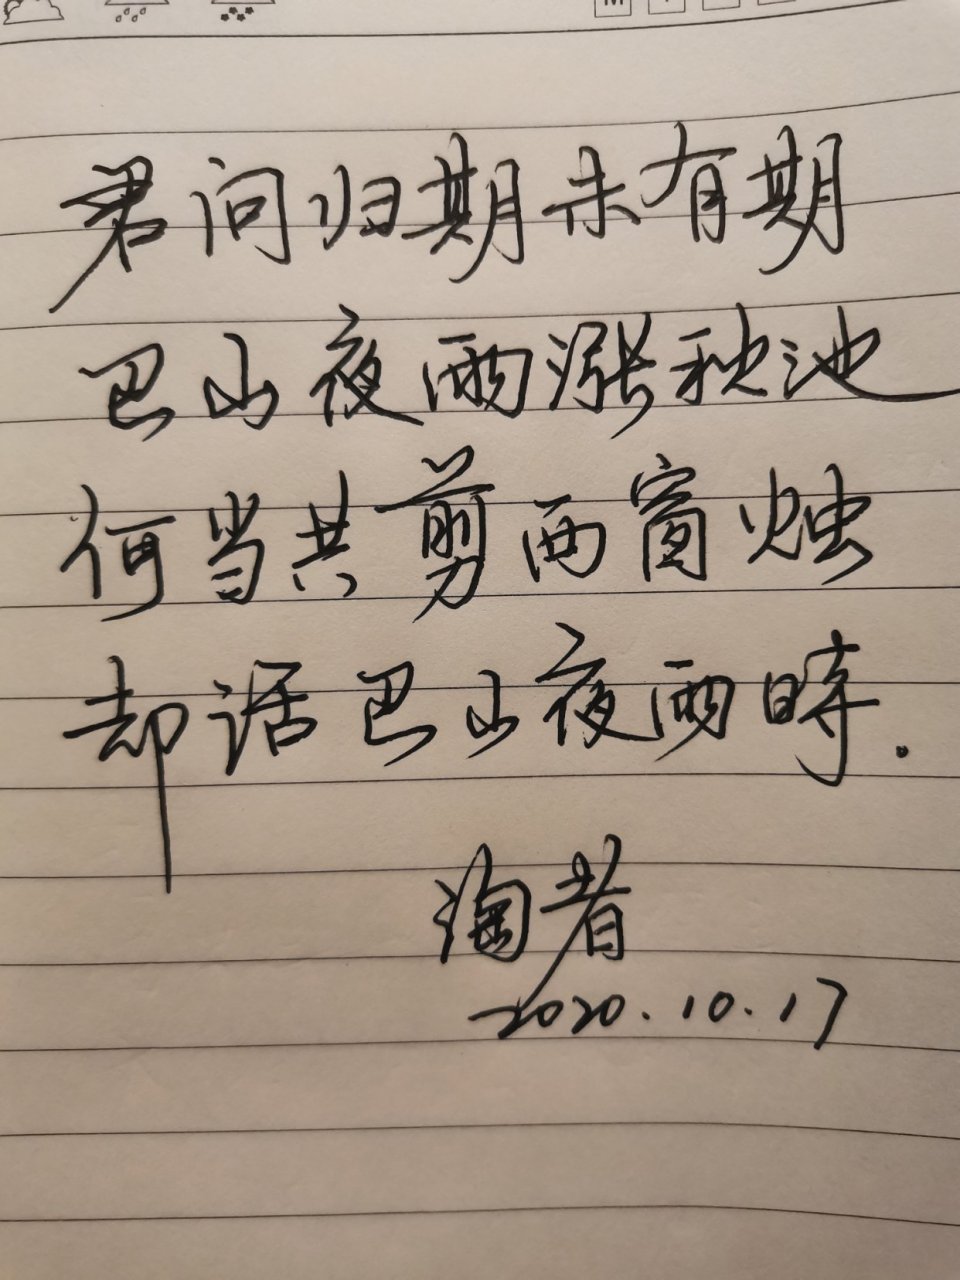 君问归期未有期
巴山夜雨涨秋池
何当共剪西窗烛
却话巴山夜雨時.
淘者
2020.10.17